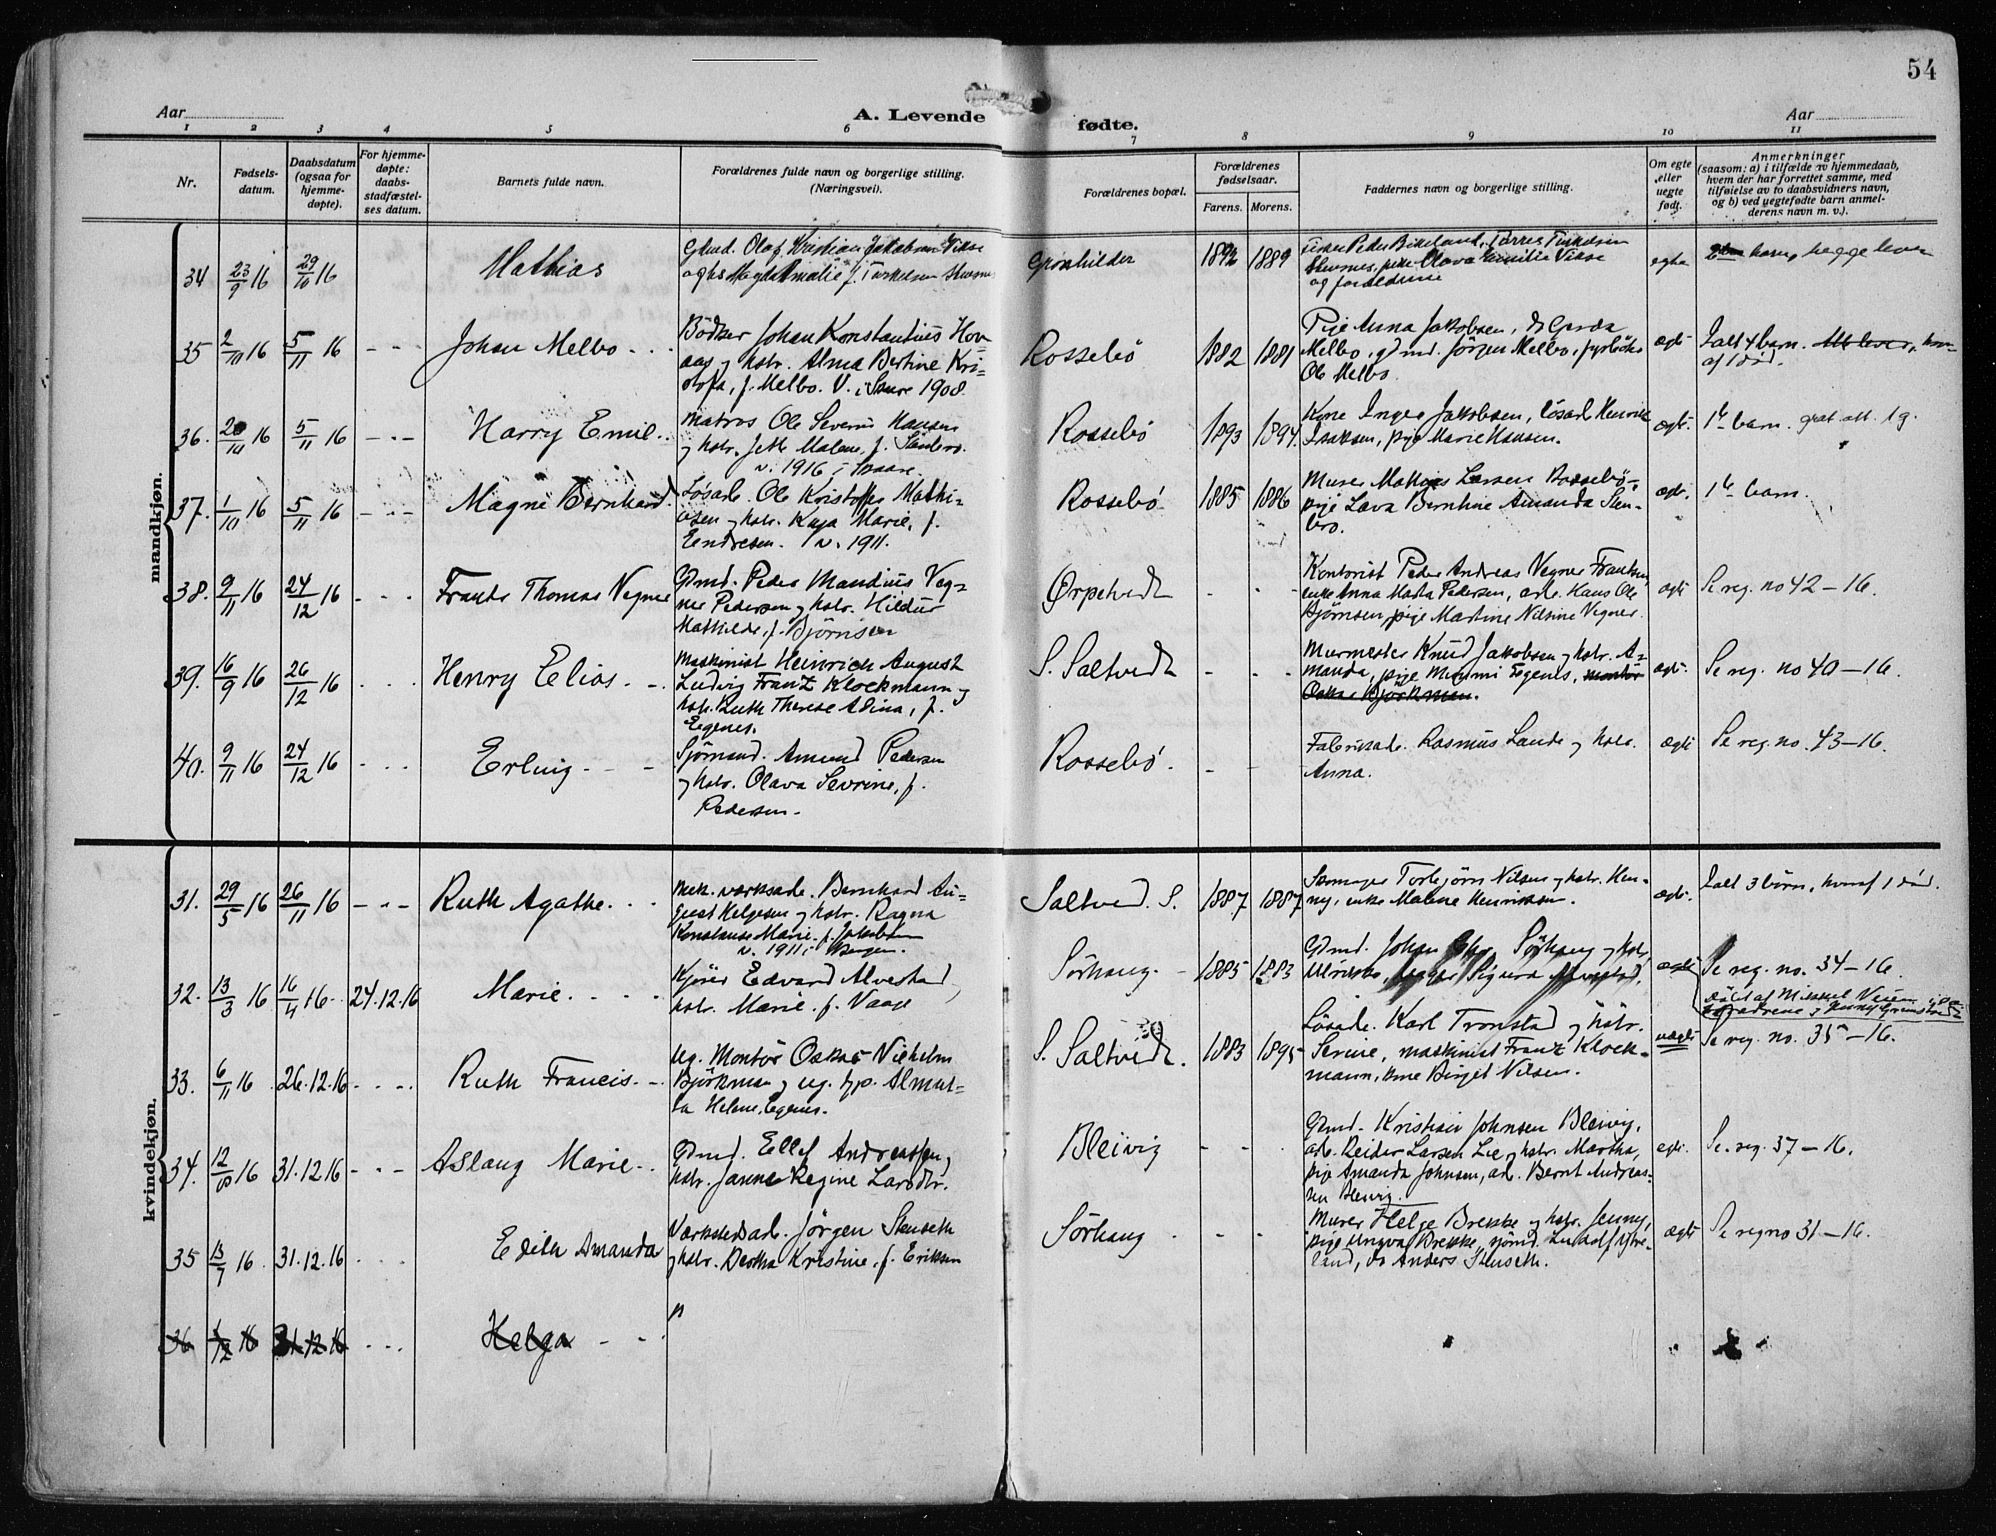 54
Aar
A. Levende
fødte.
Aar
1 2 3 4 5 6 7 8 9 10 11
Nr.
Fødsels-
datum.
Daabsdatum
(ogsaa for
hjemme-
døpte).
For hjemme-
døpte:
daabs-
stadfæstel-
ses datum.
Barnets fulde navn.
Forældrenes fulde navn og borgerlige stilling.
(Næringsvei).
Forældrenes bopæl.
Forældrenes
fødselsaar.
Farens. Morens.
Faddernes navn og borgerlige stilling.
Om egte
eller
uegte
født.
Anmerkninger
(saasom: a) i tilfælde av hjemmedaab,
hvem der har forrettet samme, med
tilføielse av to daabsvidners navn,
og b) ved uegtefødte barn anmel-
derens navn m. v.).
mandkjøn.
34 23/9 16 29/10 16 Mathias
Olaf Kristian Jakobsen
1889
egte
og forældrene
35 2/10 16 5/11 16 - - - Johan Melbo
Bödker Johan Konstantius Hov-
aag og hstr. Alma Bertine Kri-
stofa, f. Melbo. V. i Skaare 1908.
Rossebö 1882 1881
Pige Anna Jakobsen, do Gerda
Melbo, gdmd. Jörgen Melbo, fyrböter
Ole Melbo.
ægte
Ialt 4 barn.
af 1 död.
36. 20/10 16 5/11 16 - - - Harry Emil
Matros Ole Severin Hansen
og hstr. Malene, f.
v. 1916 i Skaare.
Rossebö 1893 1894.
Kone Inger Jakobsen, lösarb. Henrik
Isaksen, pige Marie Hansen.
ægte. 1ste barn.
37. 1/10 16 5/11 16 - - - Magne Bernhard
Løsarb. Ole Kristoffer Mathi-
asen og hstr. Kaja Marie, f.
Eendresen. v. 1911.
Rossebö 1885 1886
Murer Mathias Larsen Rossebö,
pige Lava Bernhine Amanda Sten-
bro.
ægte. 1ste barn.
38. 9/11 16 24/12 16 - - - Frants Thomas Vegner
Gdmd. Peder Mandius Veg-
ner Pedersen og hstr. Hildur
Mathilde, f. Björnsen
Ørpetvedt - -
Kontorist Peder Andreas Vegner Frantsen,
enke Anna Marta Pedersen, arb. Hans Ole
Björnsen, pige Martine Nilsine Vegner.
ægte Se reg. no 42 - 16.
39. 16/9 16 26/12 16 - - - Henry Elias
Maskinist Heinrich August
Ludvig Franz Klockmann og
hstr. Ruth Therese Adina, f.
Eegenes.
S. Saltvedt - -
Murmester Knud Jakobsen og hstr. A-
manda, pige Mimmi Egenes, montör
Oskar Björkman.
ægte. Se reg. no 40 - 16.
40. 9/11 16 24/12 16 - - - Erling
Sjömand. Amund Pedersen
og hstr. Olava Sevrine, f.
Pedersen.
Rossebö. - -
Fabrikarb. Rasmus Lande og hstr.
Anna.
ægte Se reg. no. 43 - 16.
kvindekjøn.
31. 29/5 16 26/11 16 - - - Ruth Agathe
Mek. værksarb. Bernhard Au-
gust Helgesen og hstr. Ragna
Konstanse Marie, f. Jakobsen
v. 1911 i Bergen.
Saltved. S. 1887 1887
Torbjörn Nilsen og hstr. Hen-
ny, enke Malene Henriksen.
ægte.
Ialt 3 börn, hvoraf 1 död.
32. 13/3 16 16/4 16 24.12.16 Marie
Kjörer Edvard Alvestad,
hstr. Marie, f. Vaage
Sörhaug. - 1885 1883
Gdmd. Johan Sörhaug og hstr.
Sigurd
ægte
Se reg. no. 34 - 16.
33. 6/11 16 26.12.16 - - - Ruth Francis
Ug. Montör Oskar Vilhelm
Björkman og ug. Almar-
ta Helene Egenes.
S. Saltvedt. 1883 1895
Lösarb. Karl Tronstad og hstr.
Serine, maskinist Franz Klock-
mann, Birgit Nilsen.
uægte Se reg. no. 35 - 16.
34. 12/8 16 31.12.16 - - - Aslaug Marie
Gdmd. Ellef Andreassen,
hstr. Janna Regine Larsdtr.
Bleivig - -
Gdmd. Kristian Johnsen Bleivig,
arb. Reidar Larsen Lie og hstr. Martha,
pige Amanda Johnsen, arb. Bernt Andreas-
sen Bleivig.
egte. Se reg. 37 - 16.
35 13/7 16 31.12.16 Edith Amanda
Værkstedarb. Jörgen Stenseth
og hstr. Bertha Kristine, f. Eriksen
Sörhaug - -
Murer Helge Brekke og hstr. Jenny,
pige Yngva Brekke, sjömd.
land, do Anders Stenseth.
ægte Se reg no 31 - 16.
36 1/12 16 31.12.16 Helga